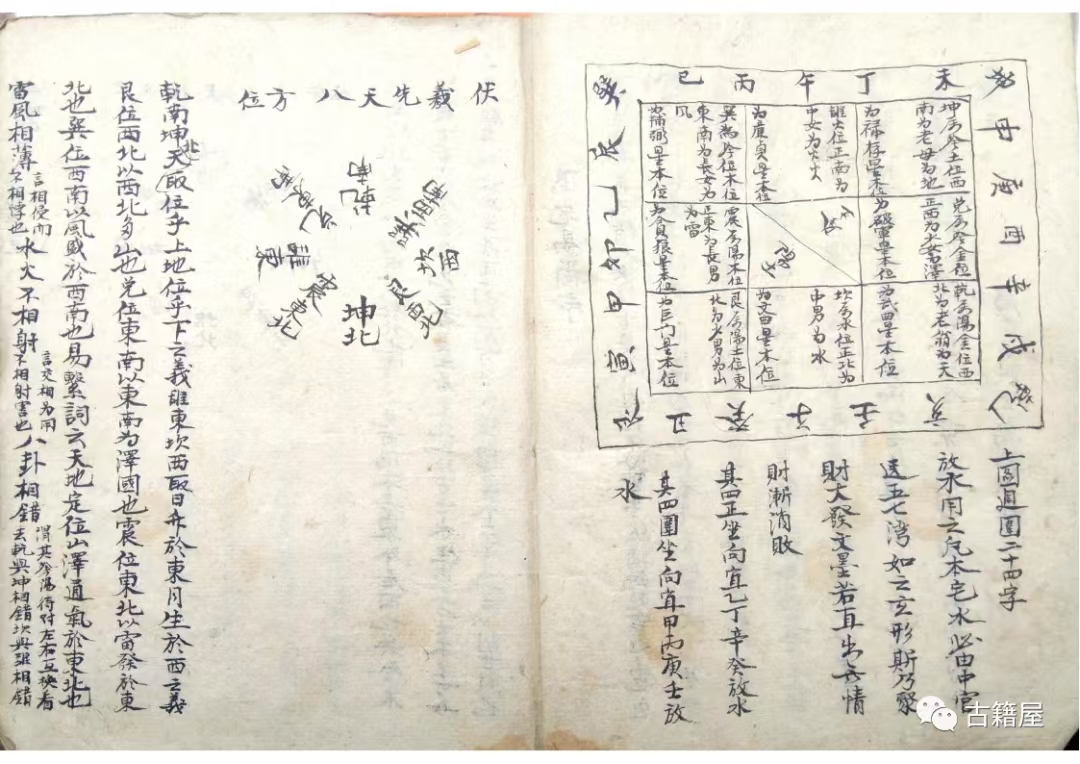 未丁午丙巳巽
申庚酉辛戌乾
亥壬子癸丑艮
辰乙卯甲寅
坤屬陰土位西
南為老母為地
為祿存是本位
離火位正南為
中女為火
為廉貞是本位
巽為陰位木位
東南為長女為
風
為輔弼是本位
兌屬陰金位
正西為少女為澤
為破軍是本位
震屬陽木位
正東為長男
為雷
為貪狼是本位
乾屬陽金位西
北為老翁為天
為武曲是本位
坎屬水位正北為
中男為水
為文曲是本位
艮屬陽土位東
北為少男為山
為巨門是本位
上圖週圍二十四字
放水用之凡本宅水必由中宮
透五七湾如之玄形斯乃聚
財大發文墨若直出無情
財漸消敗
其四正坐向宜乙丁辛癸放水
其四圍坐向宜甲丙庚壬放
水
伏羲先天八方位
乾南
巽西南
坎西
艮西北
坤北
震東北
離東
兌東南
乾南坤北天取位乎上地位乎下之義離東坎西取日升於東月生於西之義
艮位西北以西北多山也兌位東南以東南為澤國也震位東北以雷發於東
北也巽位西南以風盛於西南也易繫詞云天地定位山澤通氣於東北也
雷風相薄言相侵而不相悖也水火不相射言交相為用不相射害也八卦相錯謂其陰陽待對左右互換看去乾與坤相錯坎與離相錯
古籍屋